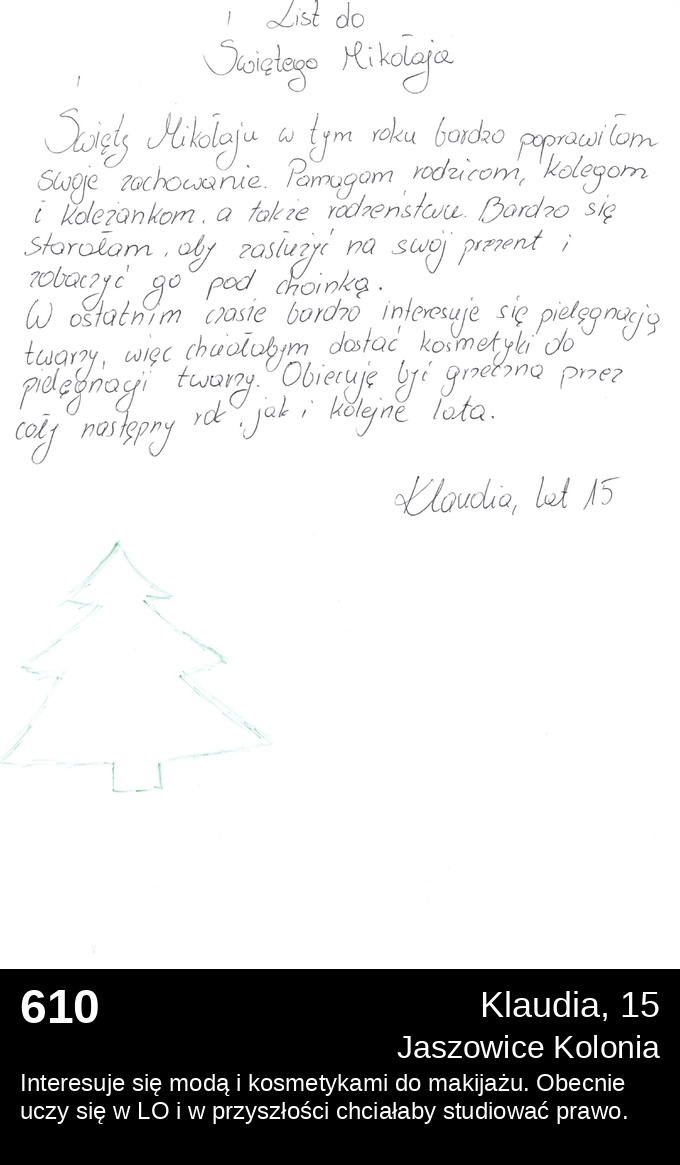 List do
Świętego Mikołaja
Święty Mikołaju w tym roku bardzo poprawiłam
swoje zachowanie. Pamagam rodzicom, kolegom
i koleżankom, a także rodzeństwu. Bardzo się
starałam, aby zasłużyć na swój prezent i
zobaczyć go pod choinką.
W ostatnim czasie bardzo interesuje się pielęgnacją
twarzy, więc chciałabym dostać kosmetyki do
pielęgnacji twarzy. Obiecuję być grzeczna przez
cały następny rok, jak i kolejne lata.
Klaudia, lat 15
610
Klaudia, 15
Jaszowice Kolonia
Interesuje się modą i kosmetykami do makijażu. Obecnie
uczy się w LO i w przyszłości chciałaby studiować prawo.